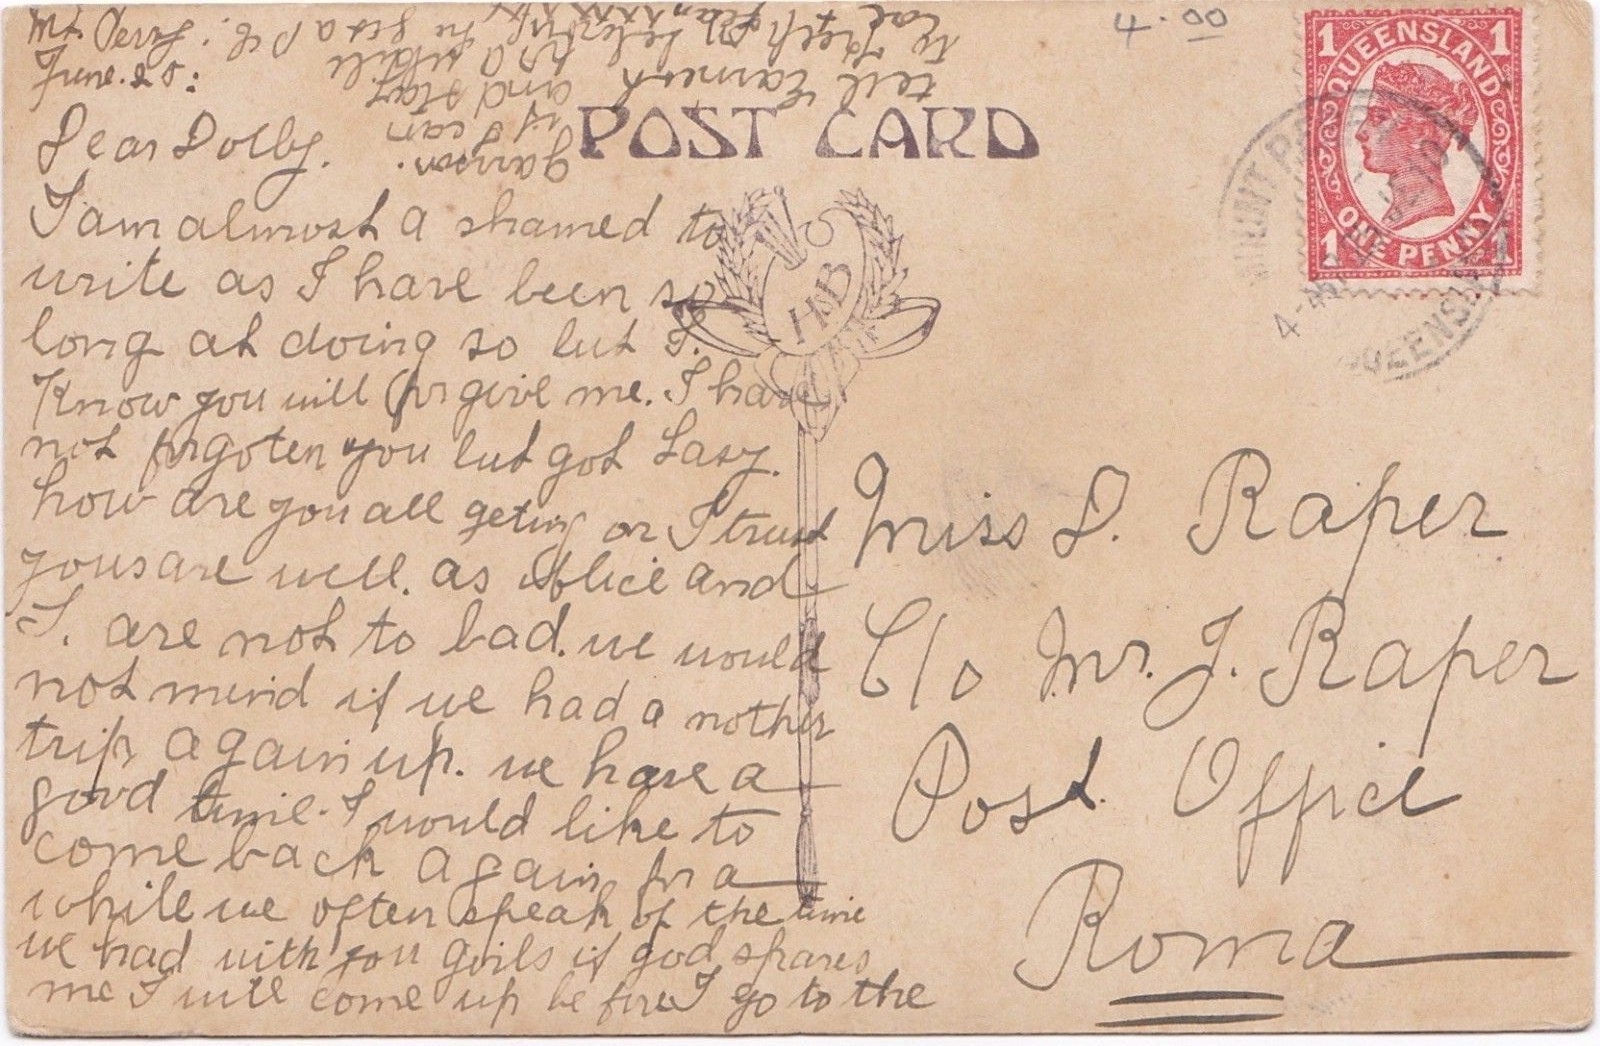 4.00
Mt Perry.
June. 28:
POST CARD
1 QUEENSLAND 1
1 ONE PENNY 1
MOUNT PERRY
QUEENSLAND
H B
Dear Dolby.
I am almost a shamed to
write as I have been so
long at doing so but I.
Know you will forgive me. I have
not forgoten you but got Lasy.
how are you all geting on I trust
yous are well. as Alice and
I. are not to bad. we would
not mind if we had a nother
trip again up. we have a
good time. I would like to
come back again for a
while we often speak of the time
we had with you goils if god spares
me I will come up be fore I go to the
tell Earnest
to
and stay
for a while
if I can
garrison.
Miss D. Raper
C/o Mr. J. Raper
Post Office
Roma